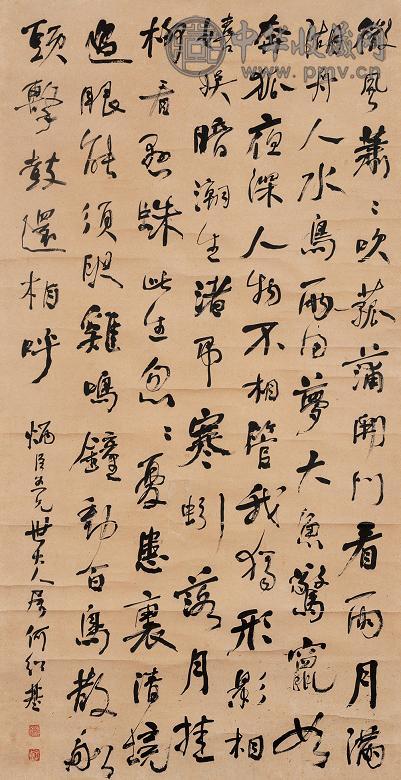 微風蕭〻吹菰蒲開門看雨月滿
湖舟人水鳥兩同夢大魚驚竄如
奔狐夜深人物不相管我獨形影相
嬉娛暗潮生渚弔寒蚓落月挂
柳看懸蛛此生忽〻憂患裏清境
過眼能須臾雞鳴鐘動百鳥散船
頭擊鼓還相呼
兄世大人屬 何紹基
中华收藏网
www.pmv.cn